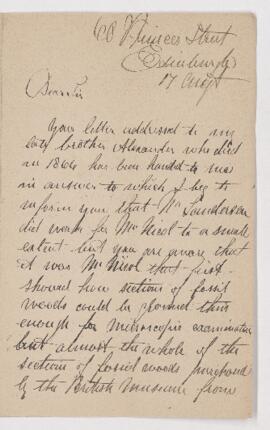 60 Princes Street
Edinburgh
17 Augt
Dear Sir
Your letter addressed to my
late brother Alexander who died
in 1866 has been handed to me
in answer to which I beg to
inform you that Mr Sanderson
did work for Mr Nicol to a small
extent but you are aware that
it was Mr Nicol that first
showed how sections of fossil
woods could be ground thin
enough for microscopic examination
but almost the whole of the
sections of fossil woods purchased
by the British Museum from